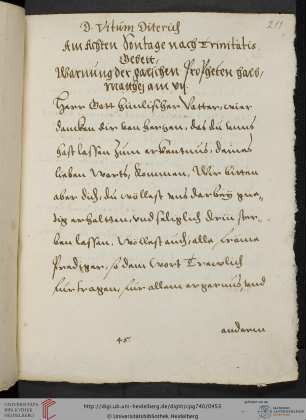 D. Vitum Diterich
211
Am Achten Sontage nach Trinitatis
Gebett,
Warnung der falschen Propheten halb,
Matthei am vij.
Herr Gott himlischer Vatter, wir
dancken dir von herzen, das du vnns
hast lassen zum erkentnus, deines
lieben Worts, kommen, Wir bitten
aber dich, du wöllest vns darbey gne-
dig erhaltten, vnd sëliglich drin ster-
ben lassen. Wöllest auch, alle frome
Prediger, so dein Wort Trewlich
fürtragen, für allem ergernus, vnd
anderm
45.
UNIVERSITÄTS-
BIBLIOTHEK
HEIDELBERG
http://digi.ub.uni-heidelberg.de/diglit/cpg740/0453
© Universitätsbibliothek Heidelberg